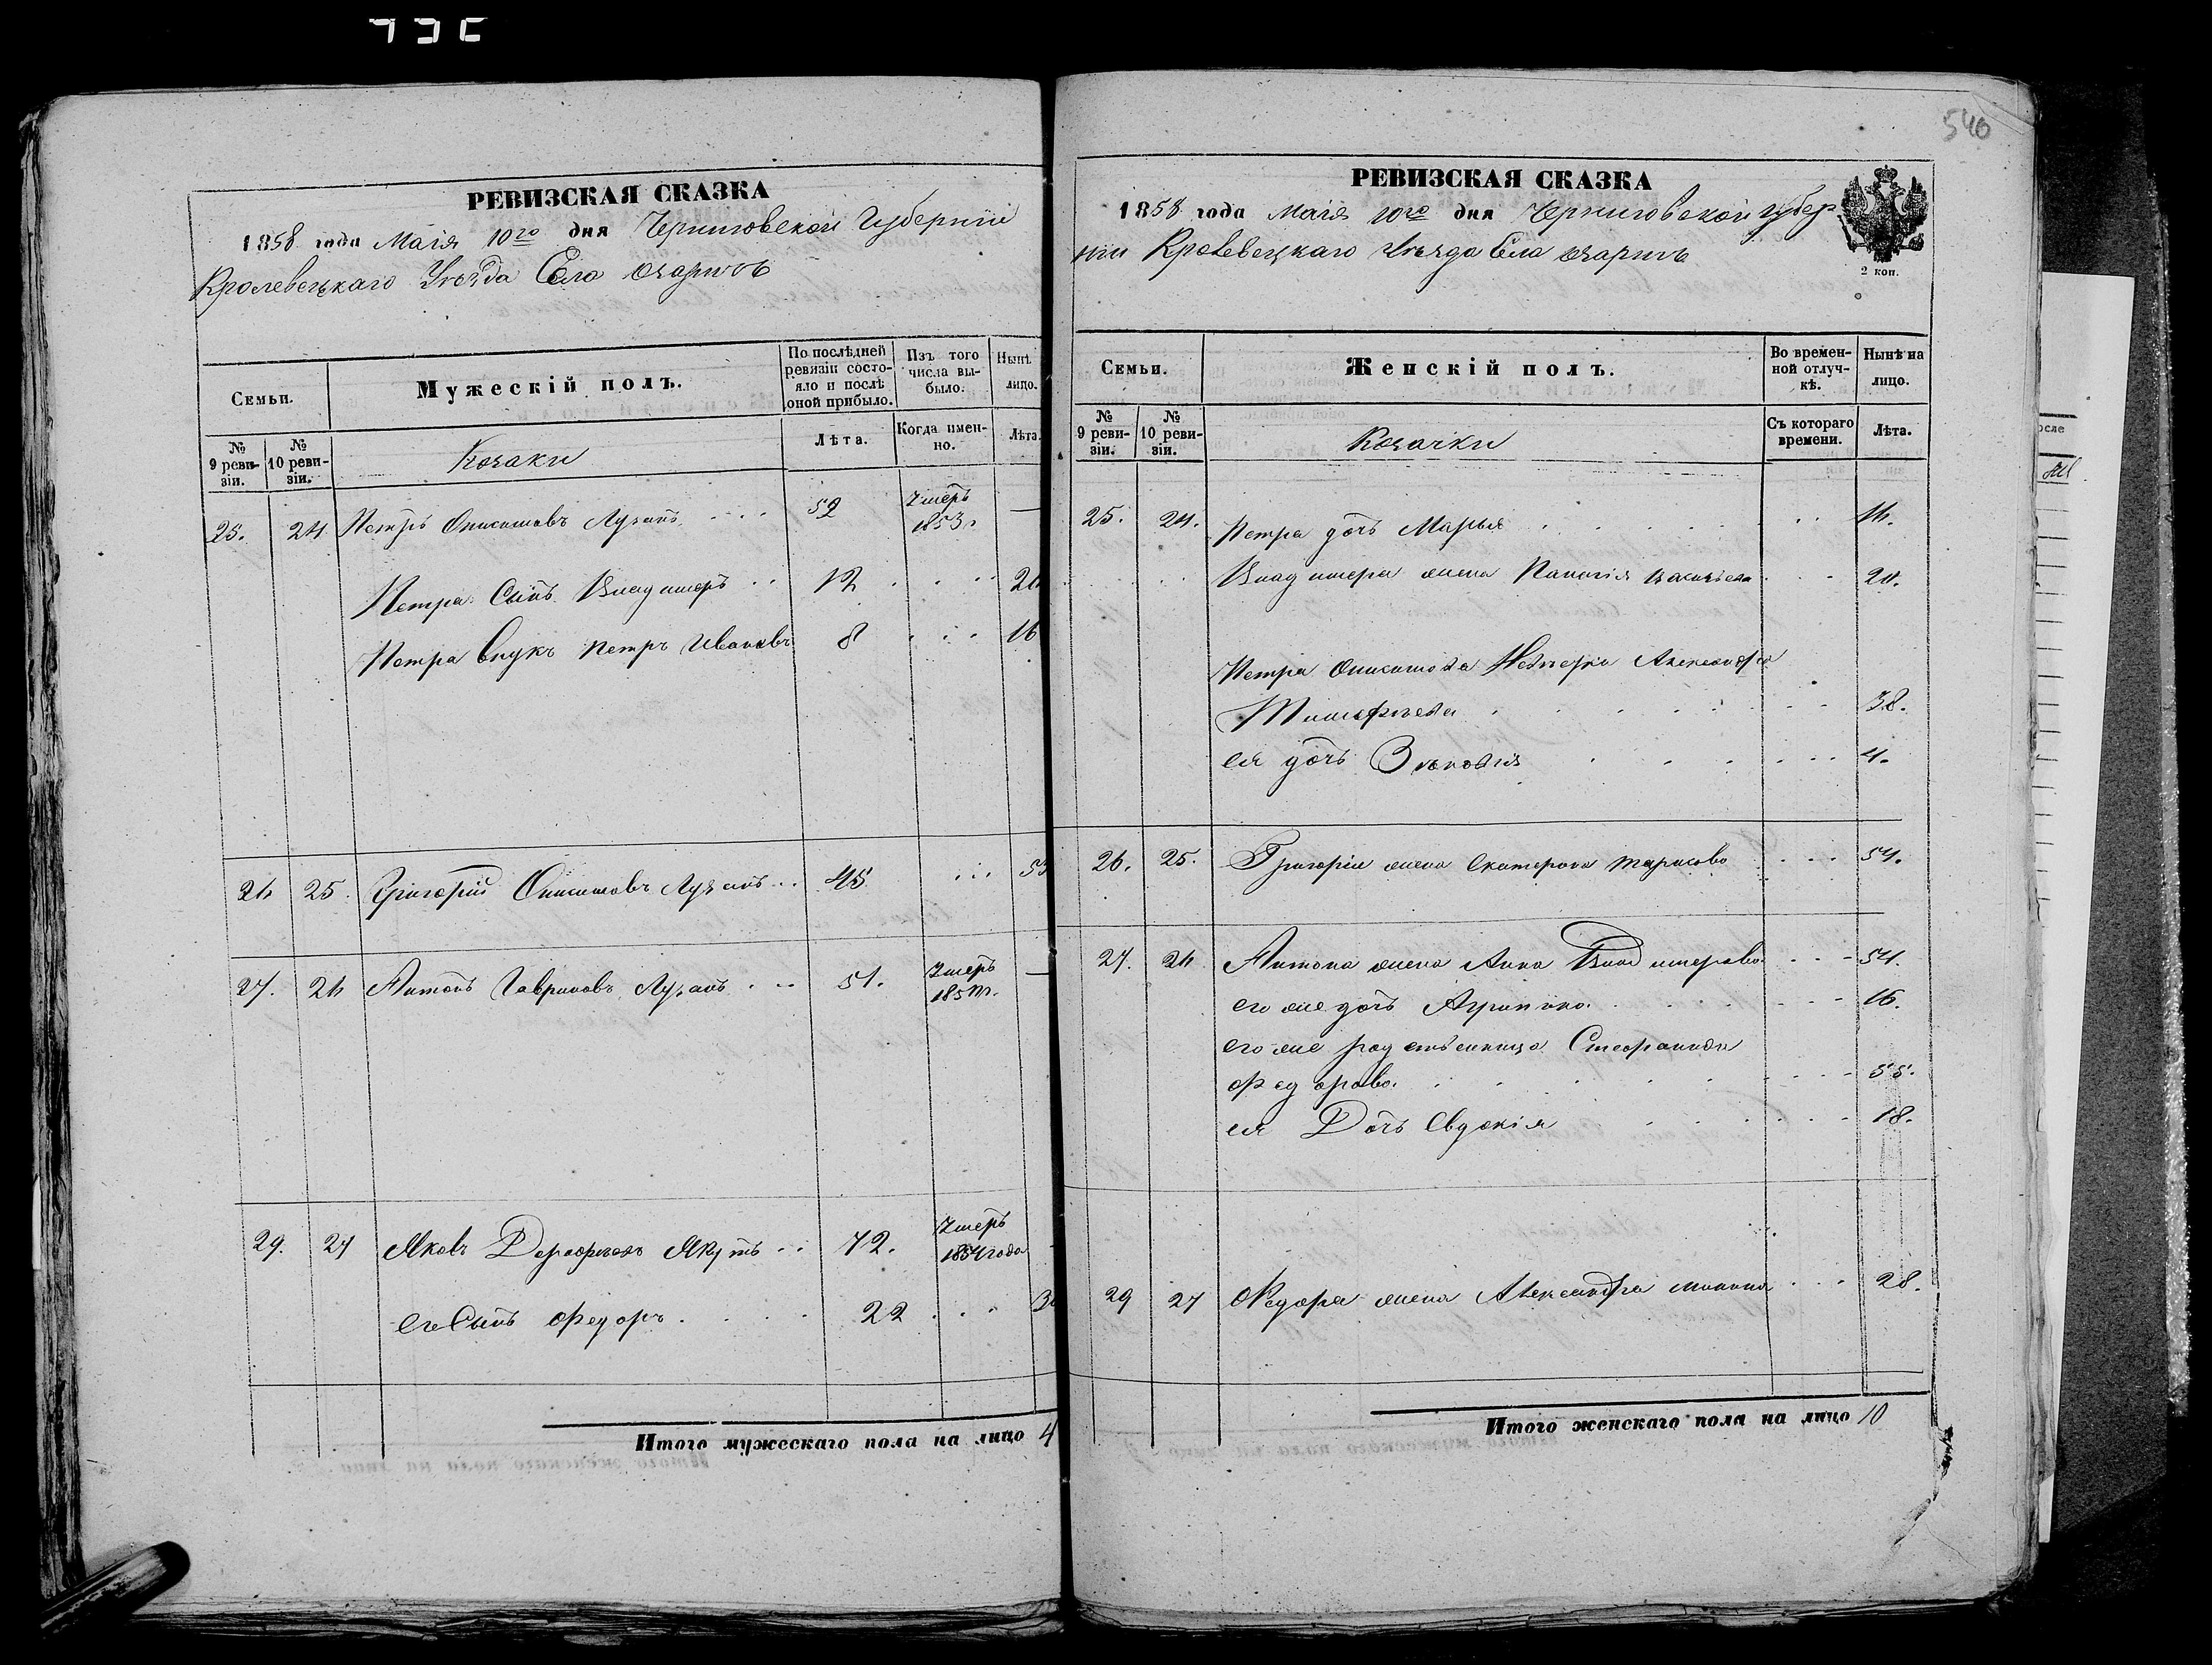 540
РЕВИЗСКАЯ СКАЗКА
1858 года Маія 10го дня Черниговской Губерніи
Кролевецкаго Уѣзда Села
Семьи.
Мужескій полъ.
По послѣдней ревизіи состояло и послѣ оной прибыло.
Изъ того числа выбыло.
Нынѣ
лицо.
№ 9 ревизіи.
№ 10 ревизіи.
Козаки
Лѣта.
Когда именно.
Лѣта.
25. 24 Петръ Онисимовъ 52 Умеръ 1853 г. —
Петра Сынъ Владимеръ 12 20
Петра Внукъ Петръ Ивановъ 8 16
26 25. Григорій Онисимовъ 45 53
27. 26 Антонъ Гавриловъ 51. Умеръ —
29. 27 Яковъ Дорофѣевъ Якутъ 72. Умеръ 1854 года
его Сынъ Федоръ 22 30
Итого мужескаго пола на лицо 4
РЕВИЗСКАЯ СКАЗКА
1858 года Маія 10го дня Черниговской Губер
ніи Кролевецкаго Уѣзда Села
2 коп.
Семьи.
Женскій полъ.
Во временной отлучкѣ.
Нынѣ на лицо.
№ 9 ревизіи.
№ 10 ревизіи.
Козачки
Съ котораго времени.
Лѣта.
25. 24. Петра дочь Марья 16.
Владимера жена Пелагія Васильева 20.
Петра Онисимова Невѣстка Александра
Тимофѣева 38.
ея дочь Зѣновія 4.
26. 25. Григорія жена Екатерина Тарасова 54.
27. 26 Антона жена Анна Владимерова 54.
его же дочь Агрипина 16.
его же родственница Стефанида
Федорова 55.
ея Дочь Евдокія 18.
29 27 Федора жена Александра Минина 28.
Итого женскаго пола на лицо 10